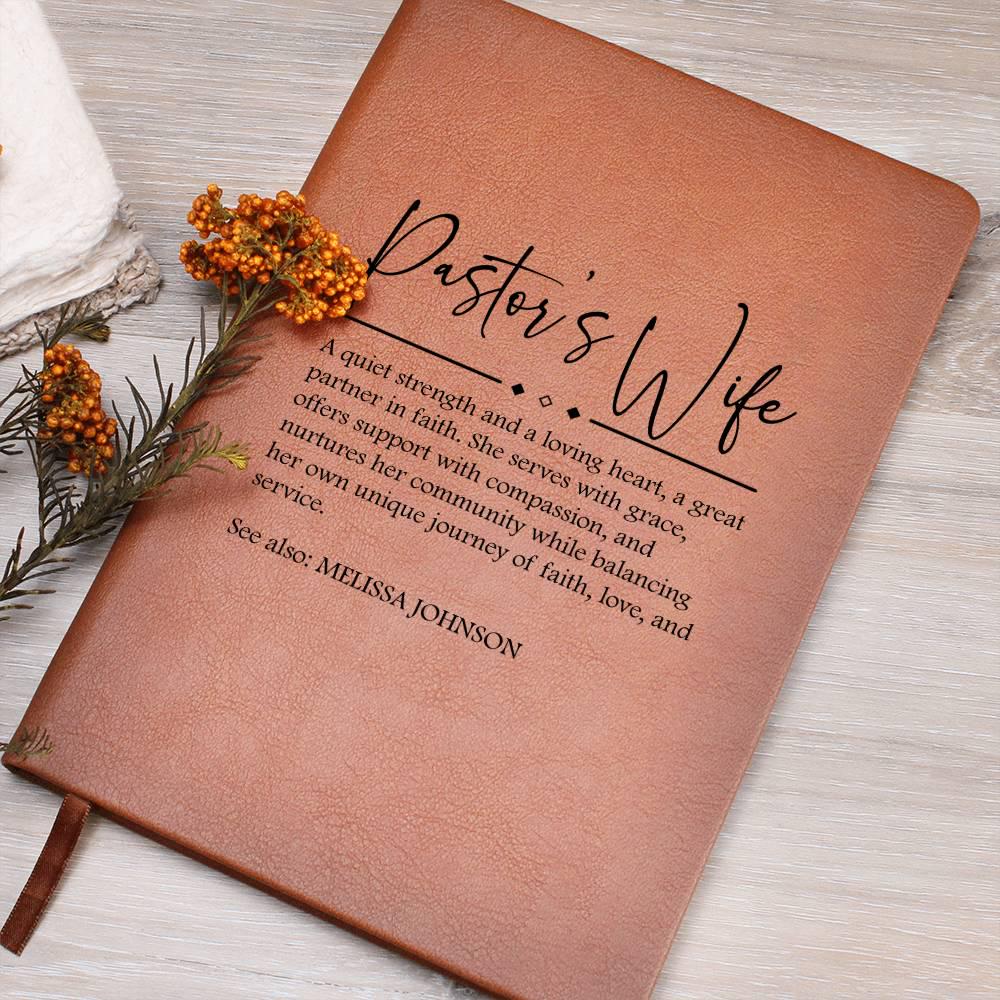 Pastor's Wife
A quiet strength and a loving heart, a great
partner in faith. She serves with grace,
offers support with compassion, and
nurtures her community while balancing
her own unique journey of faith, love, and
service.
See also: MELISSA JOHNSON